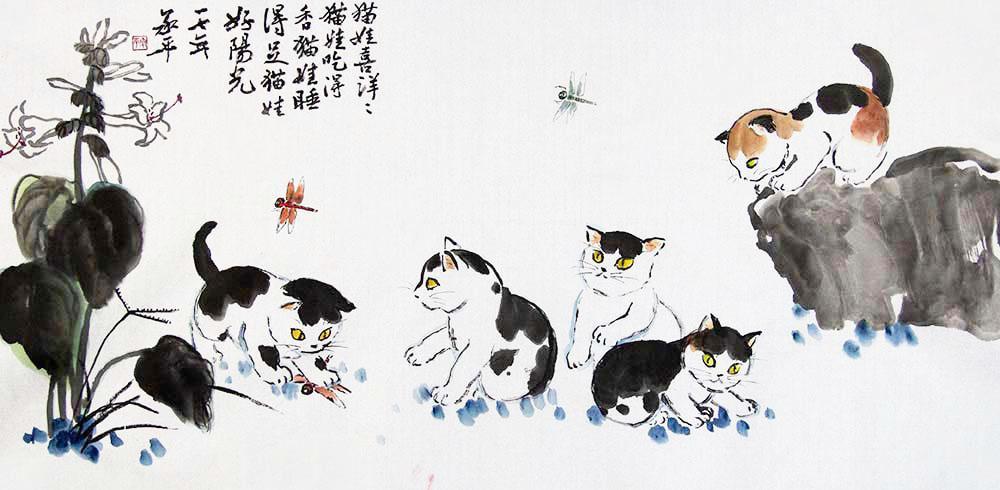 猫娃喜洋〻
猫娃吃得
香猫娃睡
得足猫娃
好陽光
一七年
承平